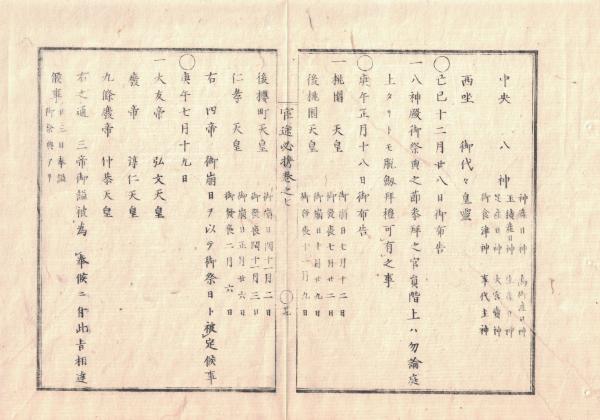 中央　八神
神産日神　高御産日神
玉積産日神　生産日神
足産日神　大宮賣神
御食津神　事代主神
西坐　御代々皇霊
己巳十二月廿八日御布告
一八神殿御祭典之節参拝之官員階上ハ勿論庭
上タリトモ脱劔拜禮可有之事
庚午正月十八日御布告
一桃園　天皇
御崩日七月十二日
御發喪七月廿二日
後桃園天皇
御崩日十月廿九日
御發喪十一月九日
官途必携巻之七
後櫻町天皇
御崩日閏十一月二日
御發喪閏十一月三日
仁孝　天皇
御崩日正月廿六日
御發喪二月六日
右四帝御崩日ヲ以テ御祭日ト被定候事
庚午七月十九日
一大友帝　弘文天皇
廢帝　淳仁天皇
九條廢帝　仲恭天皇
右之通三帝御謚被為奉候ニ付此旨相達
候事
廿三日奉謚
御祭典アリ